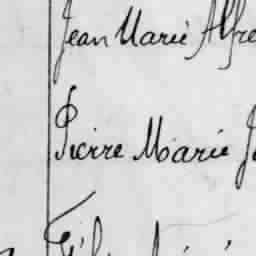 Jean Marie Alfre
Pierre Marie J